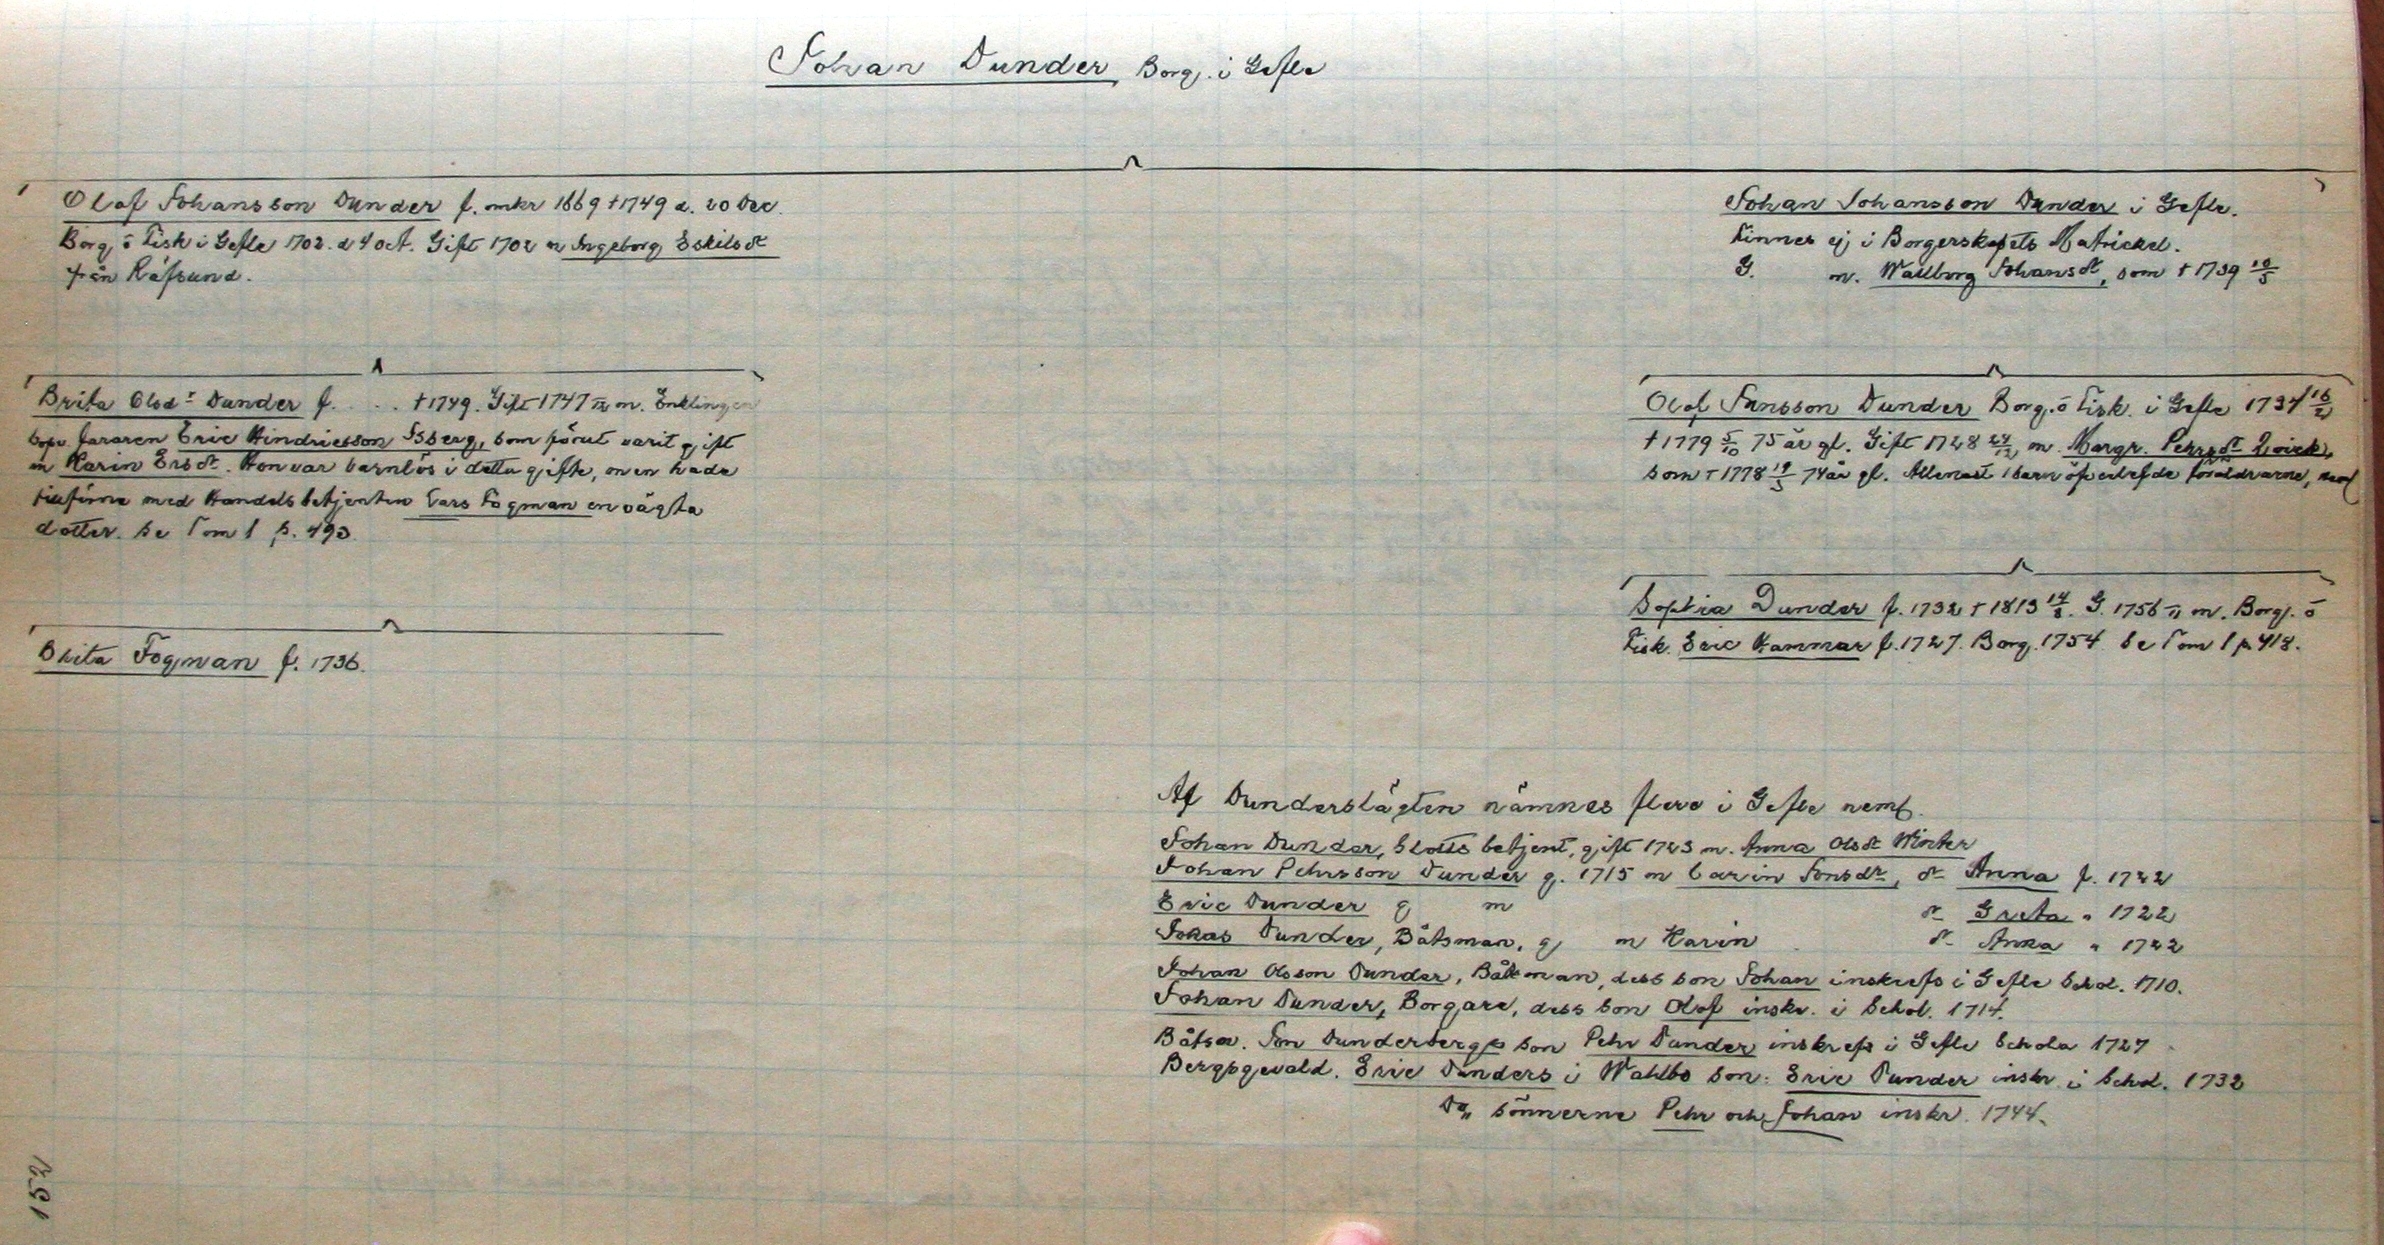 Johan Dunder, Borg. i Gefle
Olof Johansson Dunder f. omkr 1669 †1749 d. 20 Dec.
Borg. o Fisk i Gefle 1702. d 4 oct. Gift 1702 m Ingeborg Eskilsdr
från Räfsund.
Johan Johansson Dunder i Gefle.
Finnes ej i Borgerskapets Matrickel.
G. m. Wallborg Johansdr, som †1739 10/5
Brita Olsdr Dunder f. . . . †1749. Gift 1747 m. Enklingen
fararen Eric Hindricsson Isberg, som förut varit gift
m Karin Ersdr. Hon var barnlös i detta gifte, men hade
med Handelsbetjenten Lars Fogman en oägta
dotter. Se Tom 1 p. 493
Olof Jansson Dunder Borg. o Fisk. i Gefle 1734 16/2
†1779 5/10 75 år gl. Gift 1728 27/12 m. Margr. Pehrsdr
som †1778 19/5 74 år gl. Allenast 1 barn öfverlefde föräldrarne, neml
Brita Fogman f. 1736.
Sophia Dunder f. 1732 †1813 14/8. G. 1756 m. Borg. o
Fisk. Eric Hammar f. 1727. Borg. 1754 Se Tom 1 p 418.
Af Dunderslägten nämnes flere i Gefle neml.
Johan Dunder, Slottsbetjent, gift 1723 m. Anna Olsdr Winter
Johan Pehrsson Dunder g. 1715 m Carin Jonsdr, dr Anna f. 1722
Eric Dunder g m dr Greta " 1722
Jonas Dunder, Båtsman, g m Karin dr Anna " 1722
Johan Olsson Dunder, Båtsman, dess son Johan inskrefs i Gefle Schol. 1710.
Johan Dunder, Borgare, dess son Olof inskr. i Schol. 1714.
Båtsm. Jon Dunderbergs son Pehr Dunder inskrefs i Gefle Schola 1727
Bergsgevald. Eric Dunders i Wahlbo son: Eric Dunder inskr. i Schol. 1732
Do„ sönnerne Pehr och Johan inskr. 1744.